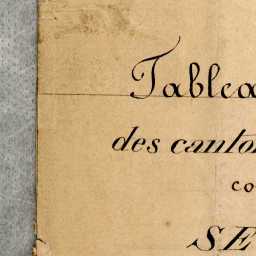 Tablea
des canton
co
SE